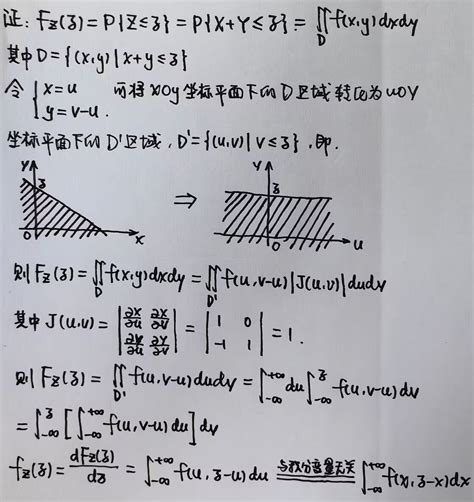 证: F_Z(z) = P{Z≤z} = P{X+Y≤z} = ∬_D f(x,y)dxdy
其中 D = {(x,y) | x+y≤z}
令 { x=u y=v-u . 可将 xOy 坐标平面下的 D 区域转化为 uOv
坐标平面下的 D' 区域, D' = {(u,v) | v≤z}, 即.
y z 0 x ⇒ y z 0 u
则 F_Z(z) = ∬_D f(x,y)dxdy = ∬_D' f(u,v-u)|J(u,v)|dudv
其中 J(u,v) = | ∂x/∂u ∂x/∂v ∂y/∂u ∂y/∂v | = | 1 0 -1 1 | = 1.
则 F_Z(z) = ∬_D' f(u,v-u)dudv = ∫_{-∞}^{+∞} du ∫_{-∞}^{z} f(u,v-u)dv
= ∫_{-∞}^{z} [ ∫_{-∞}^{+∞} f(u,v-u)du ] dv
f_Z(z) = dF_Z(z)/dz = ∫_{-∞}^{+∞} f(u,z-u)du =(与积分变量无关)= ∫_{-∞}^{+∞} f(x,z-x)dx